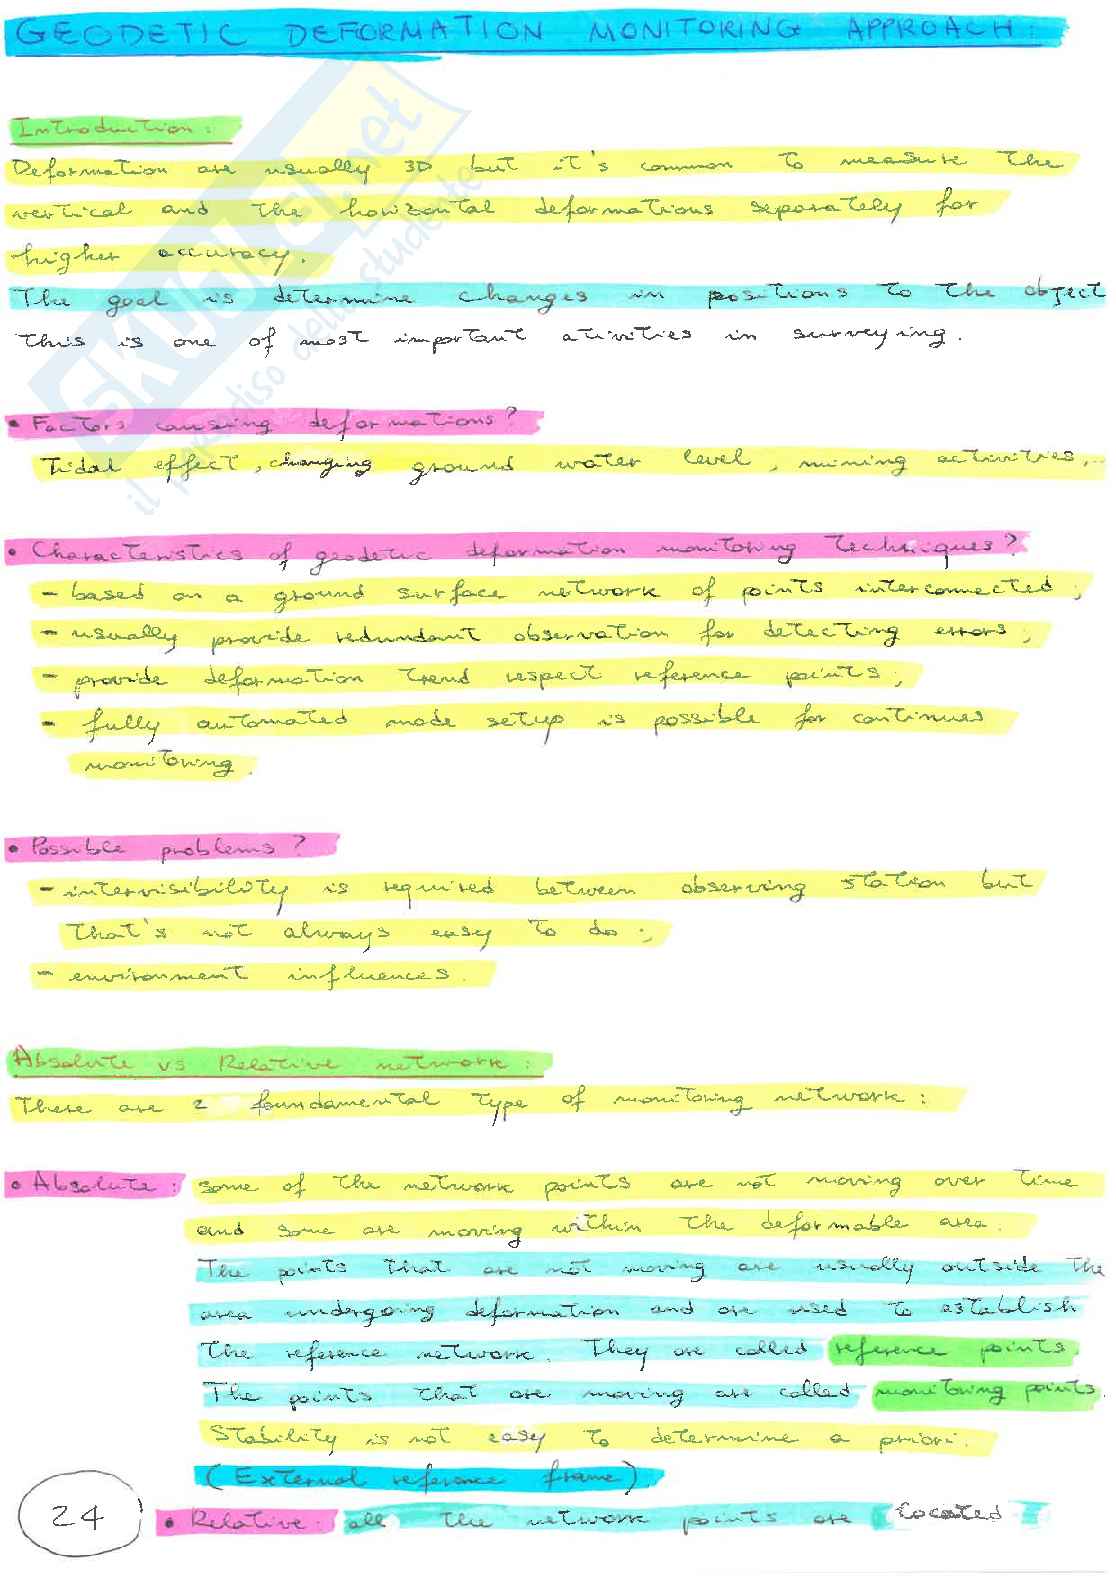 GEODETIC DEFORMATION MONITORING APPROACH:
Introduction:
Deformation are usually 3D but it's common to measure the
vertical and the horizontal deformations separately for
higher accuracy.
The goal is determine changes in positions to the object
this is one of most important ativities in surveying.
• Factors causing deformations?
Tidal effect, changing ground water level, mining activities,...
• Characteristics of geodetic deformation monitoring techniques?
- based on a ground surface network of points interconnected;
- usually provide redundant observation for detecting errors;
- provide deformation trend respect reference points;
- fully automated mode setup is possible for continues
monitoring.
• Possible problems?
- intervisibility is required between observing station but
that's not always easy to do;
- environment influences.
Absolute vs Relative network:
There are 2 fundamental type of monitoring network:
• Absolute: some of the network points are not moving over time
and some are moving within the deformable area.
The points that are not moving are usually outside the
area undergoing deformation and are used to establish
the reference network. They are called reference points.
The points that are moving are called monitoring points.
Stability is not easy to determine a priori.
(External reference frame)
24
• Relative: all the network points are located
SKUOLA.net
il paradiso dello studente